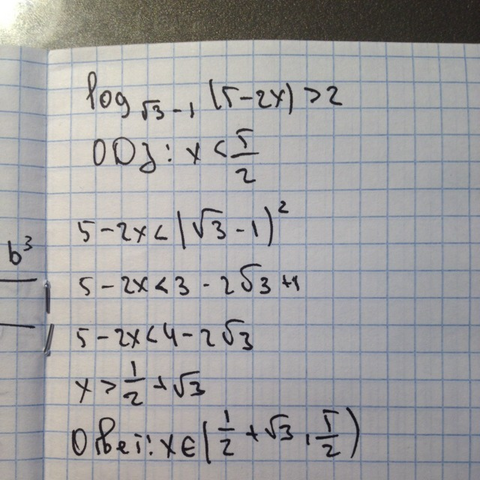 log_{√3-1} (5-2x) > 2
ОДЗ: x < 5/2
5-2x < (√3-1)²
b³
5-2x < 3 - 2√3 + 1
5-2x < 4 - 2√3
x > 1/2 + √3
Ответ: x ∈ (1/2 + √3, 5/2)